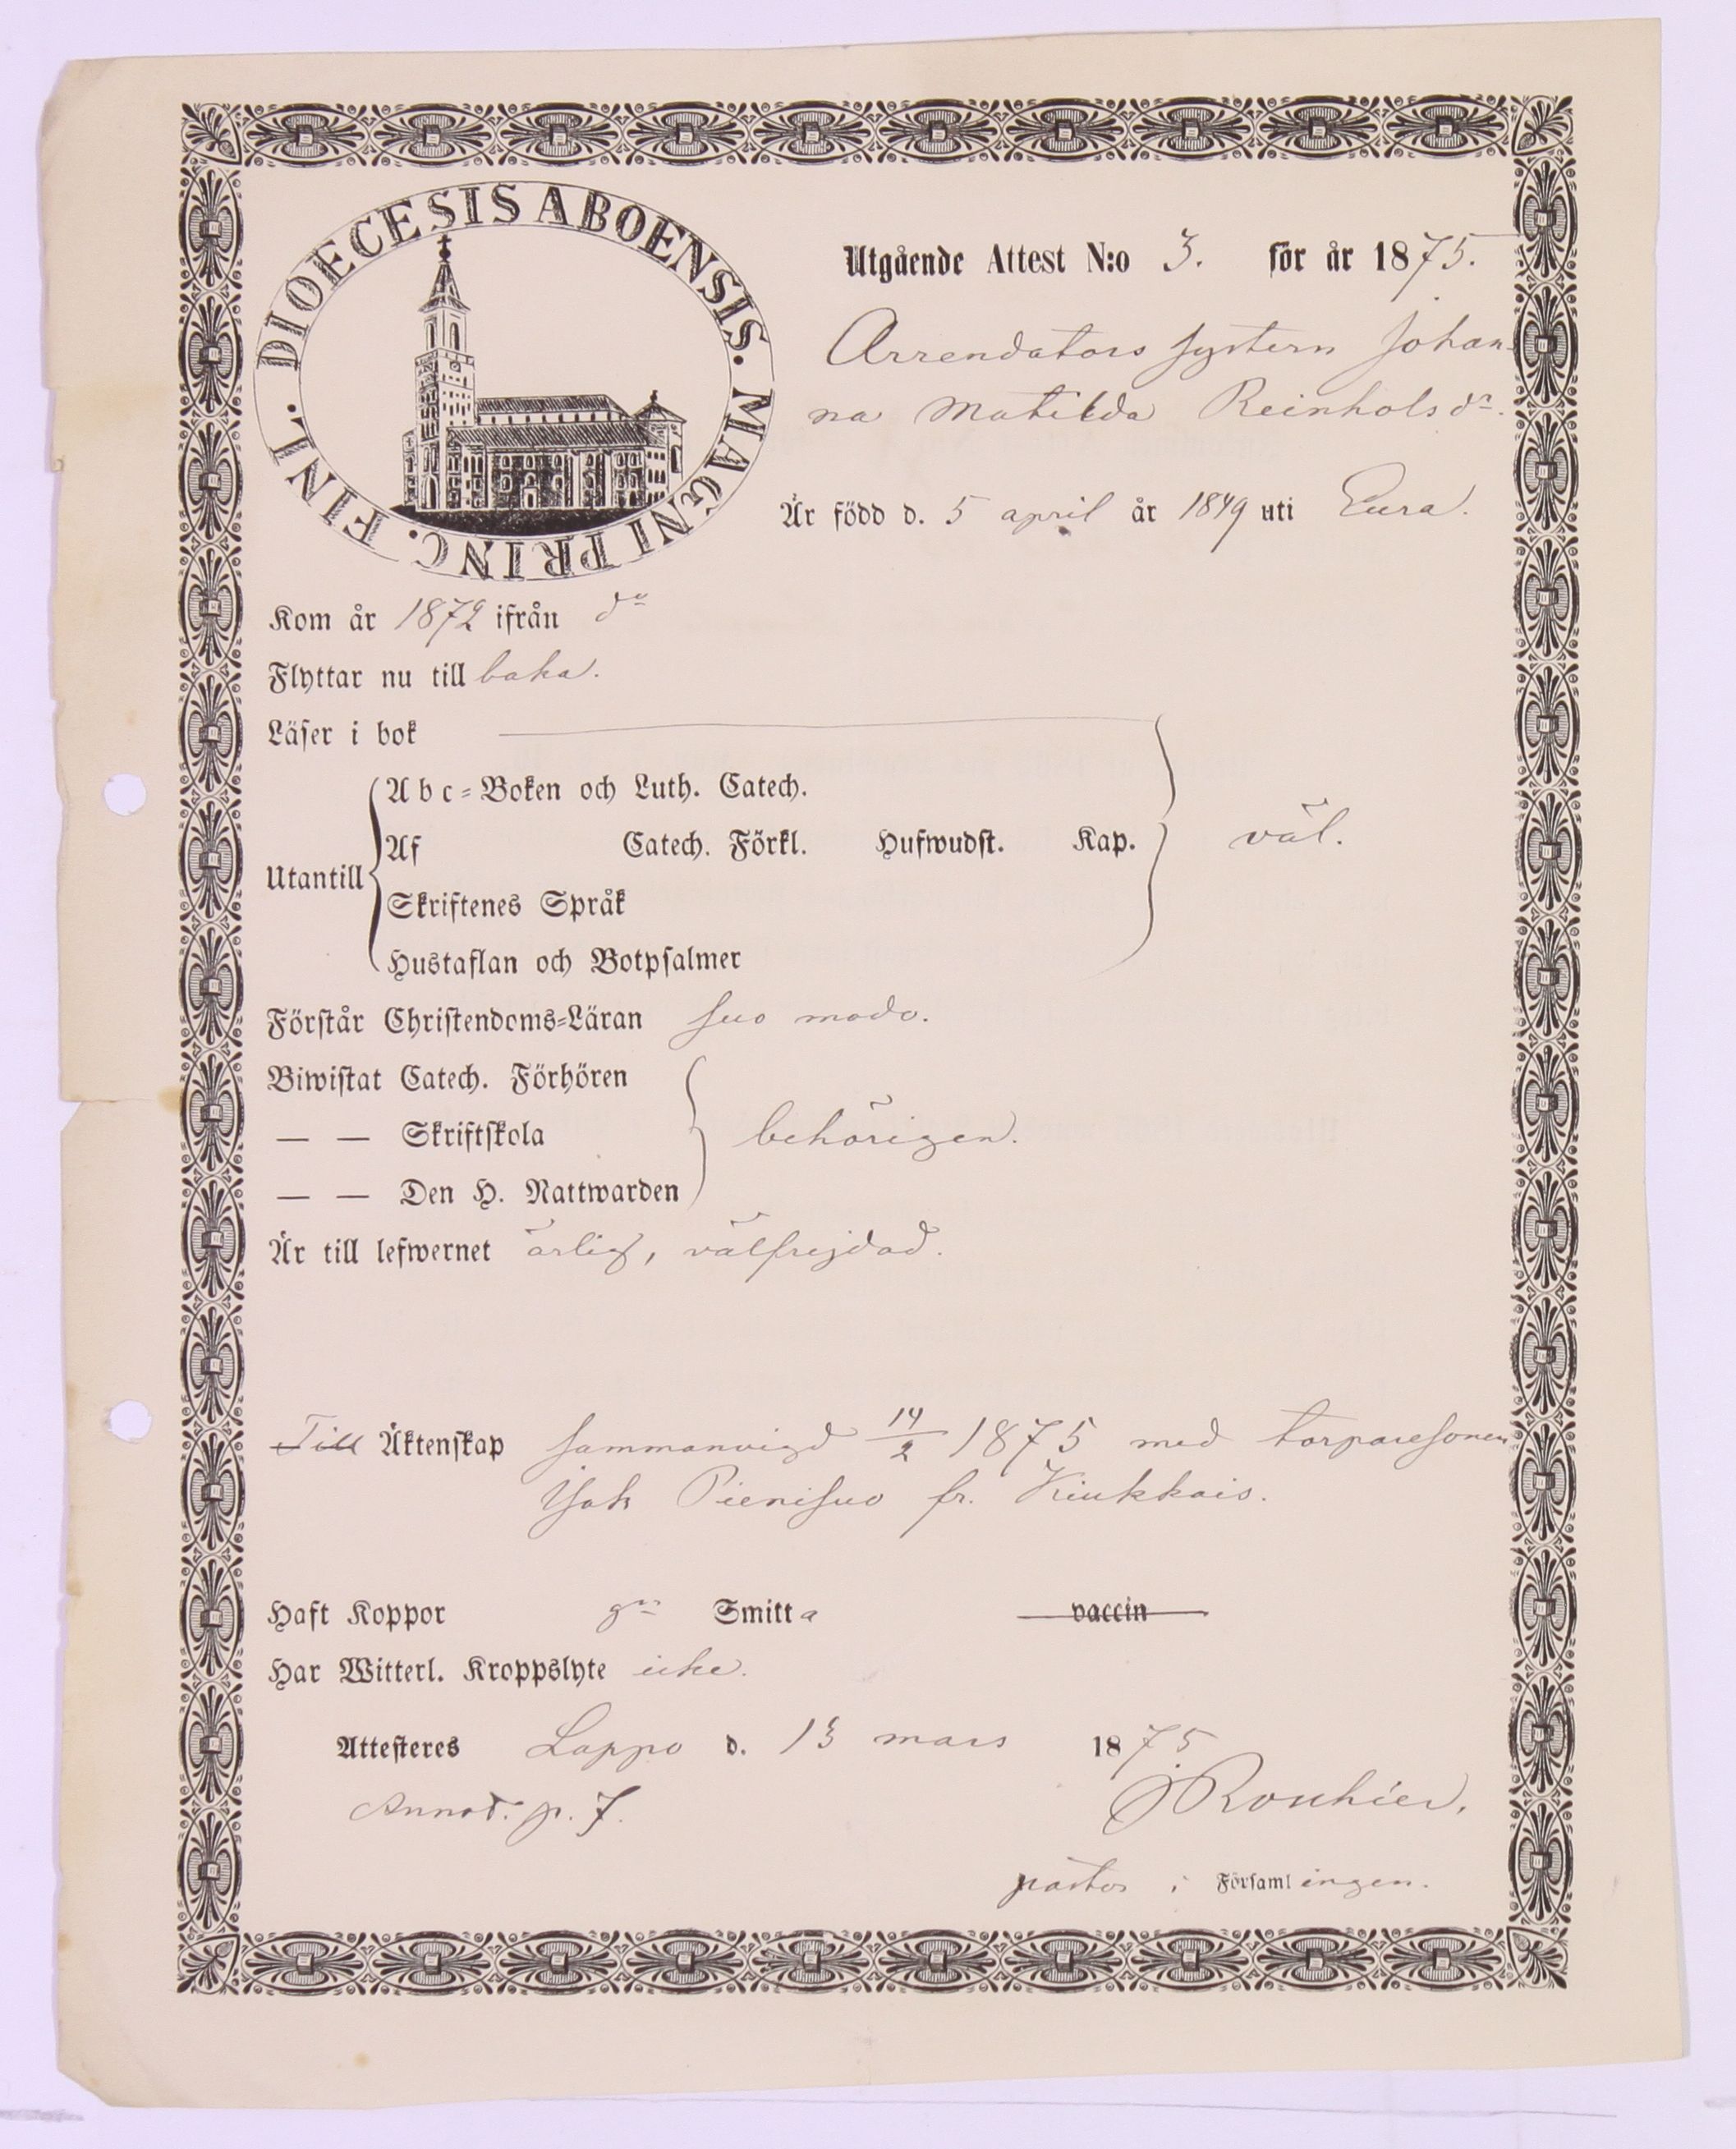 DIOECESIS ABOENSIS. MAGNI PRINC. FINL.
Utgående Attest N:o 3. för år 1875.
Arrendators systern Johan-
na Matilda Reinholsdr.
Är född d. 5 april år 1849 uti Eura.
Kom år 1872 ifrån do
Flyttar nu till baka.
Läser i bok
Abc-Boken och Luth. Catech.
Af Catech. Förkl. Hufwudst. Kap. väl.
Utantill
Skriftenes Språk
Hustaflan och Botpsalmer
Förstår Christendoms-Läran suo modo.
Biwistat Catech. Förhören
— — Skriftskola behörigen.
— — Den H. Nattwarden
Är till lefwernet ärlig, välfrejdad.
Till Äktenskap sammanvigd 14/2 1875 med torparesonen
Isak Pienisuo fr. Kiukkais.
Haft Koppor gm Smitta vaccin
Har Witterl. Kroppslyte icke.
Attesteres Lappo d. 13 mars 1875.
Annot. p. 7.
pastor i Församlingen.